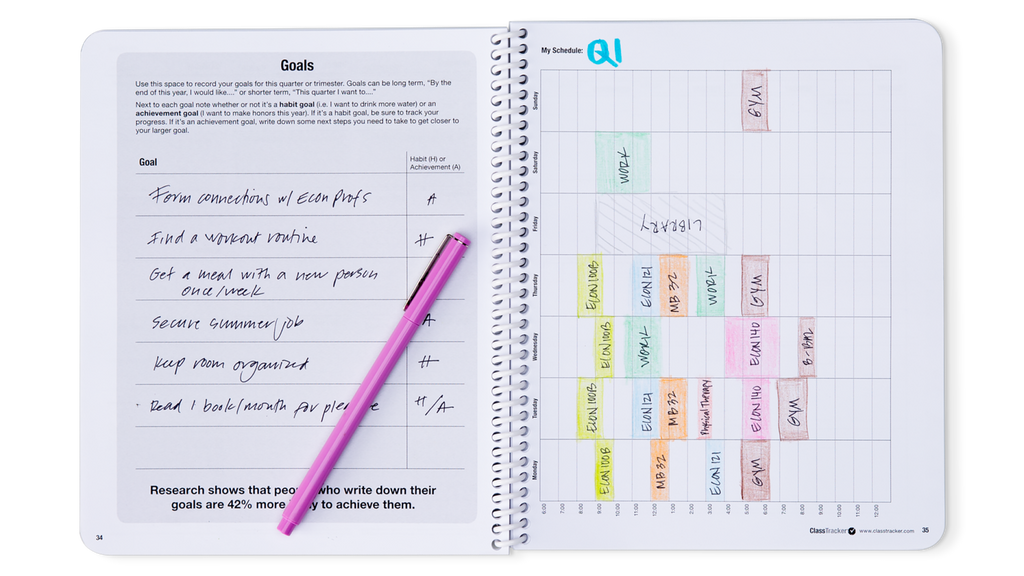 Goals
Use this space to record your goals for this quarter or trimester. Goals can be long term, "By the
end of this year, I would like...." or shorter term, "This quarter I want to...."
Next to each goal note whether or not it's a habit goal (i.e. I want to drink more water) or an
achievement goal (I want to make honors this year). If it's a habit goal, be sure to track your
progress. If it's an achievement goal, write down some next steps you need to take to get closer to
your larger goal.
Goal
Habit (H) or
Achievement (A)
Form connections w/ Econ Profs A
Find a workout routine H
Get a meal with a new person
once/week
Secure summer job A
Keep room organized H
Read 1 book/month for H/A
Research shows that who write down their
goals are 42% more to achieve them.
34
My Schedule: Q1
Sunday
GYM
Saturday
WORK
Friday
LIBRARY
Thursday
ECON 100B
ECON 121
MB 32
WORK
GYM
Wednesday
ECON 100B
WORK
ECON 140
Tuesday
ECON 100B
ECON 121
MB 32
Physical Therapy
ECON 140
GYM
Monday
ECON 100B
MB 32
ECON 121
GYM
6:00 7:00 8:00 9:00 10:00 11:00 12:00 1:00 2:00 3:00 4:00 5:00 6:00 7:00 8:00 9:00 10:00 11:00 12:00
ClassTracker www.classtracker.com 35